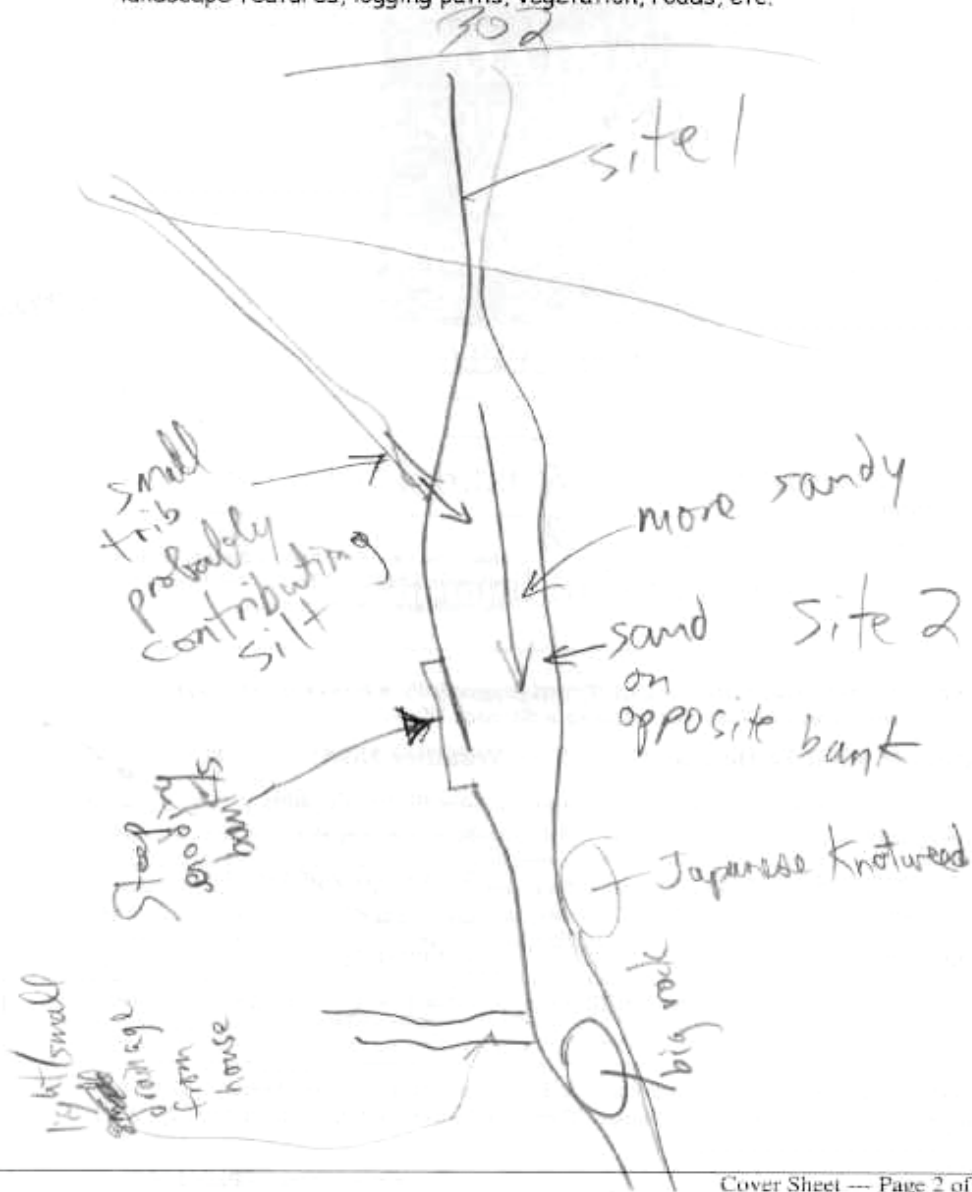 landscape features, logging paths, vegetation, roads, etc.
302
site 1
small
trib
probably
contributing
silt
more sandy
sand
on
opposite bank
Site 2
Steep
bank
Japanese Knotweed
big rock
light/small
drainage
from
house
Cover Sheet --- Page 2 of